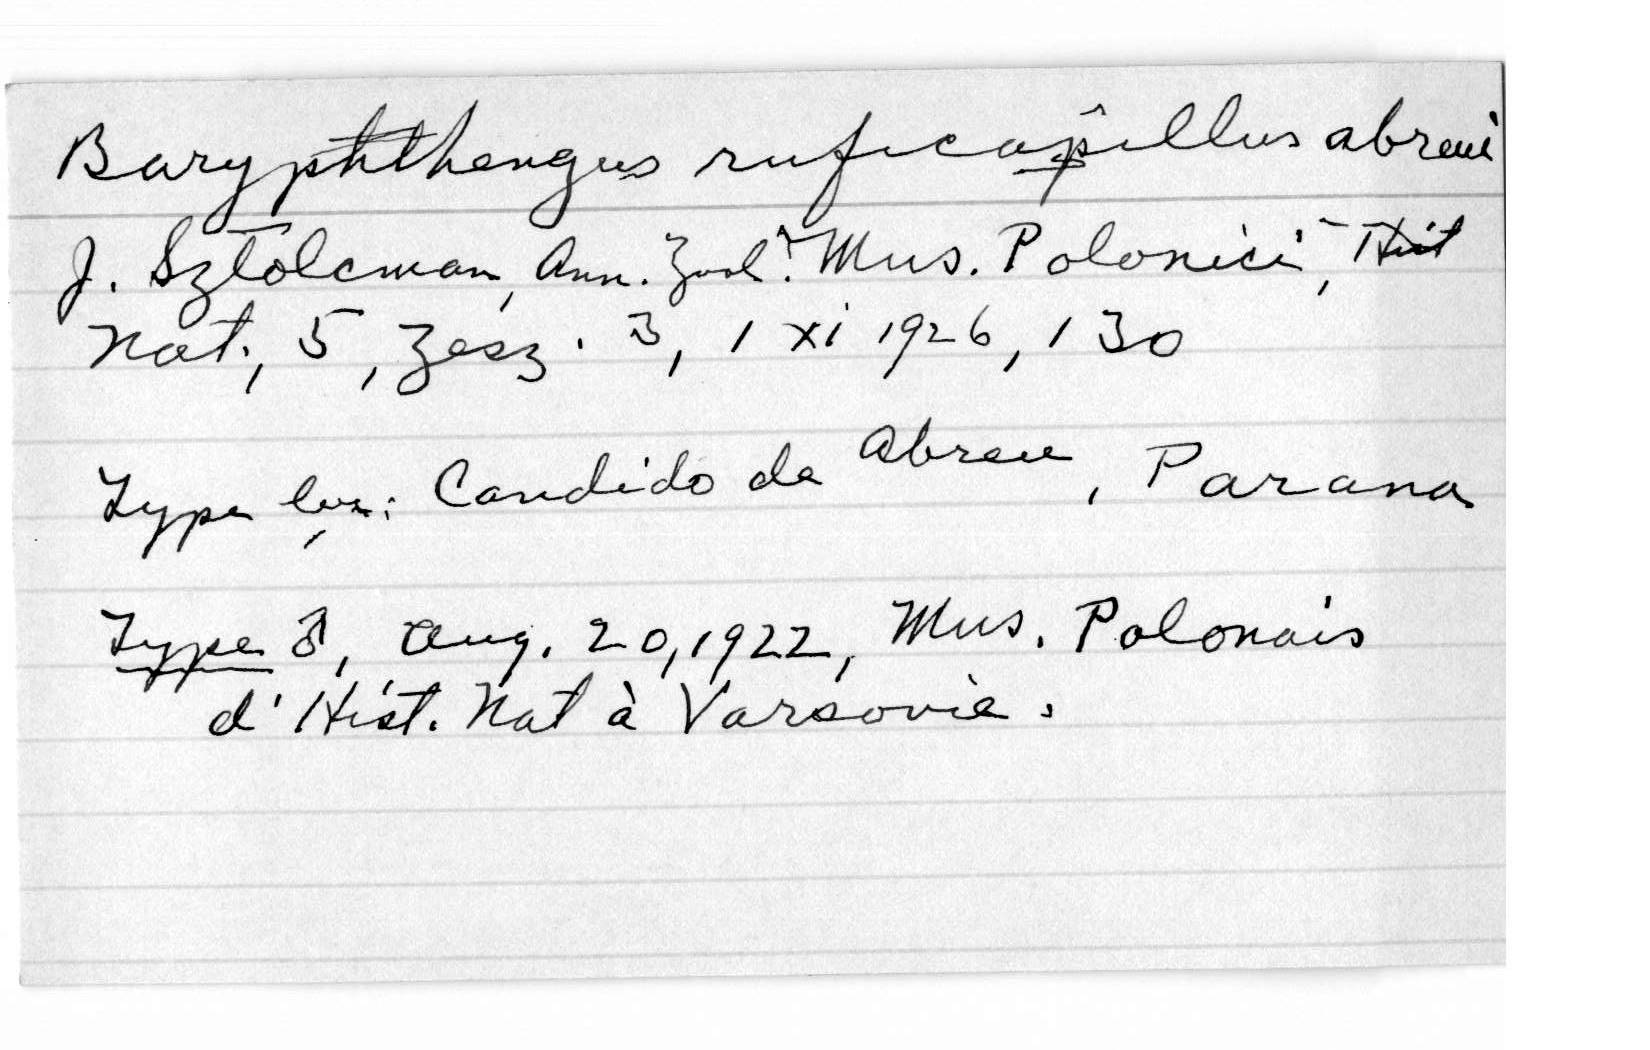 Baryphthengus ruficapillus abreui
J. Sztolcman, Ann. Zool. Mus. Polonici, Hist
Nat., 5, Zesz. 3, 1 xi 1926, 130
Type loc.: Candido de Abreu, Parana
Type ♂, Aug. 20, 1922, Mus. Polonais
d'Hist. Nat à Varsovie.